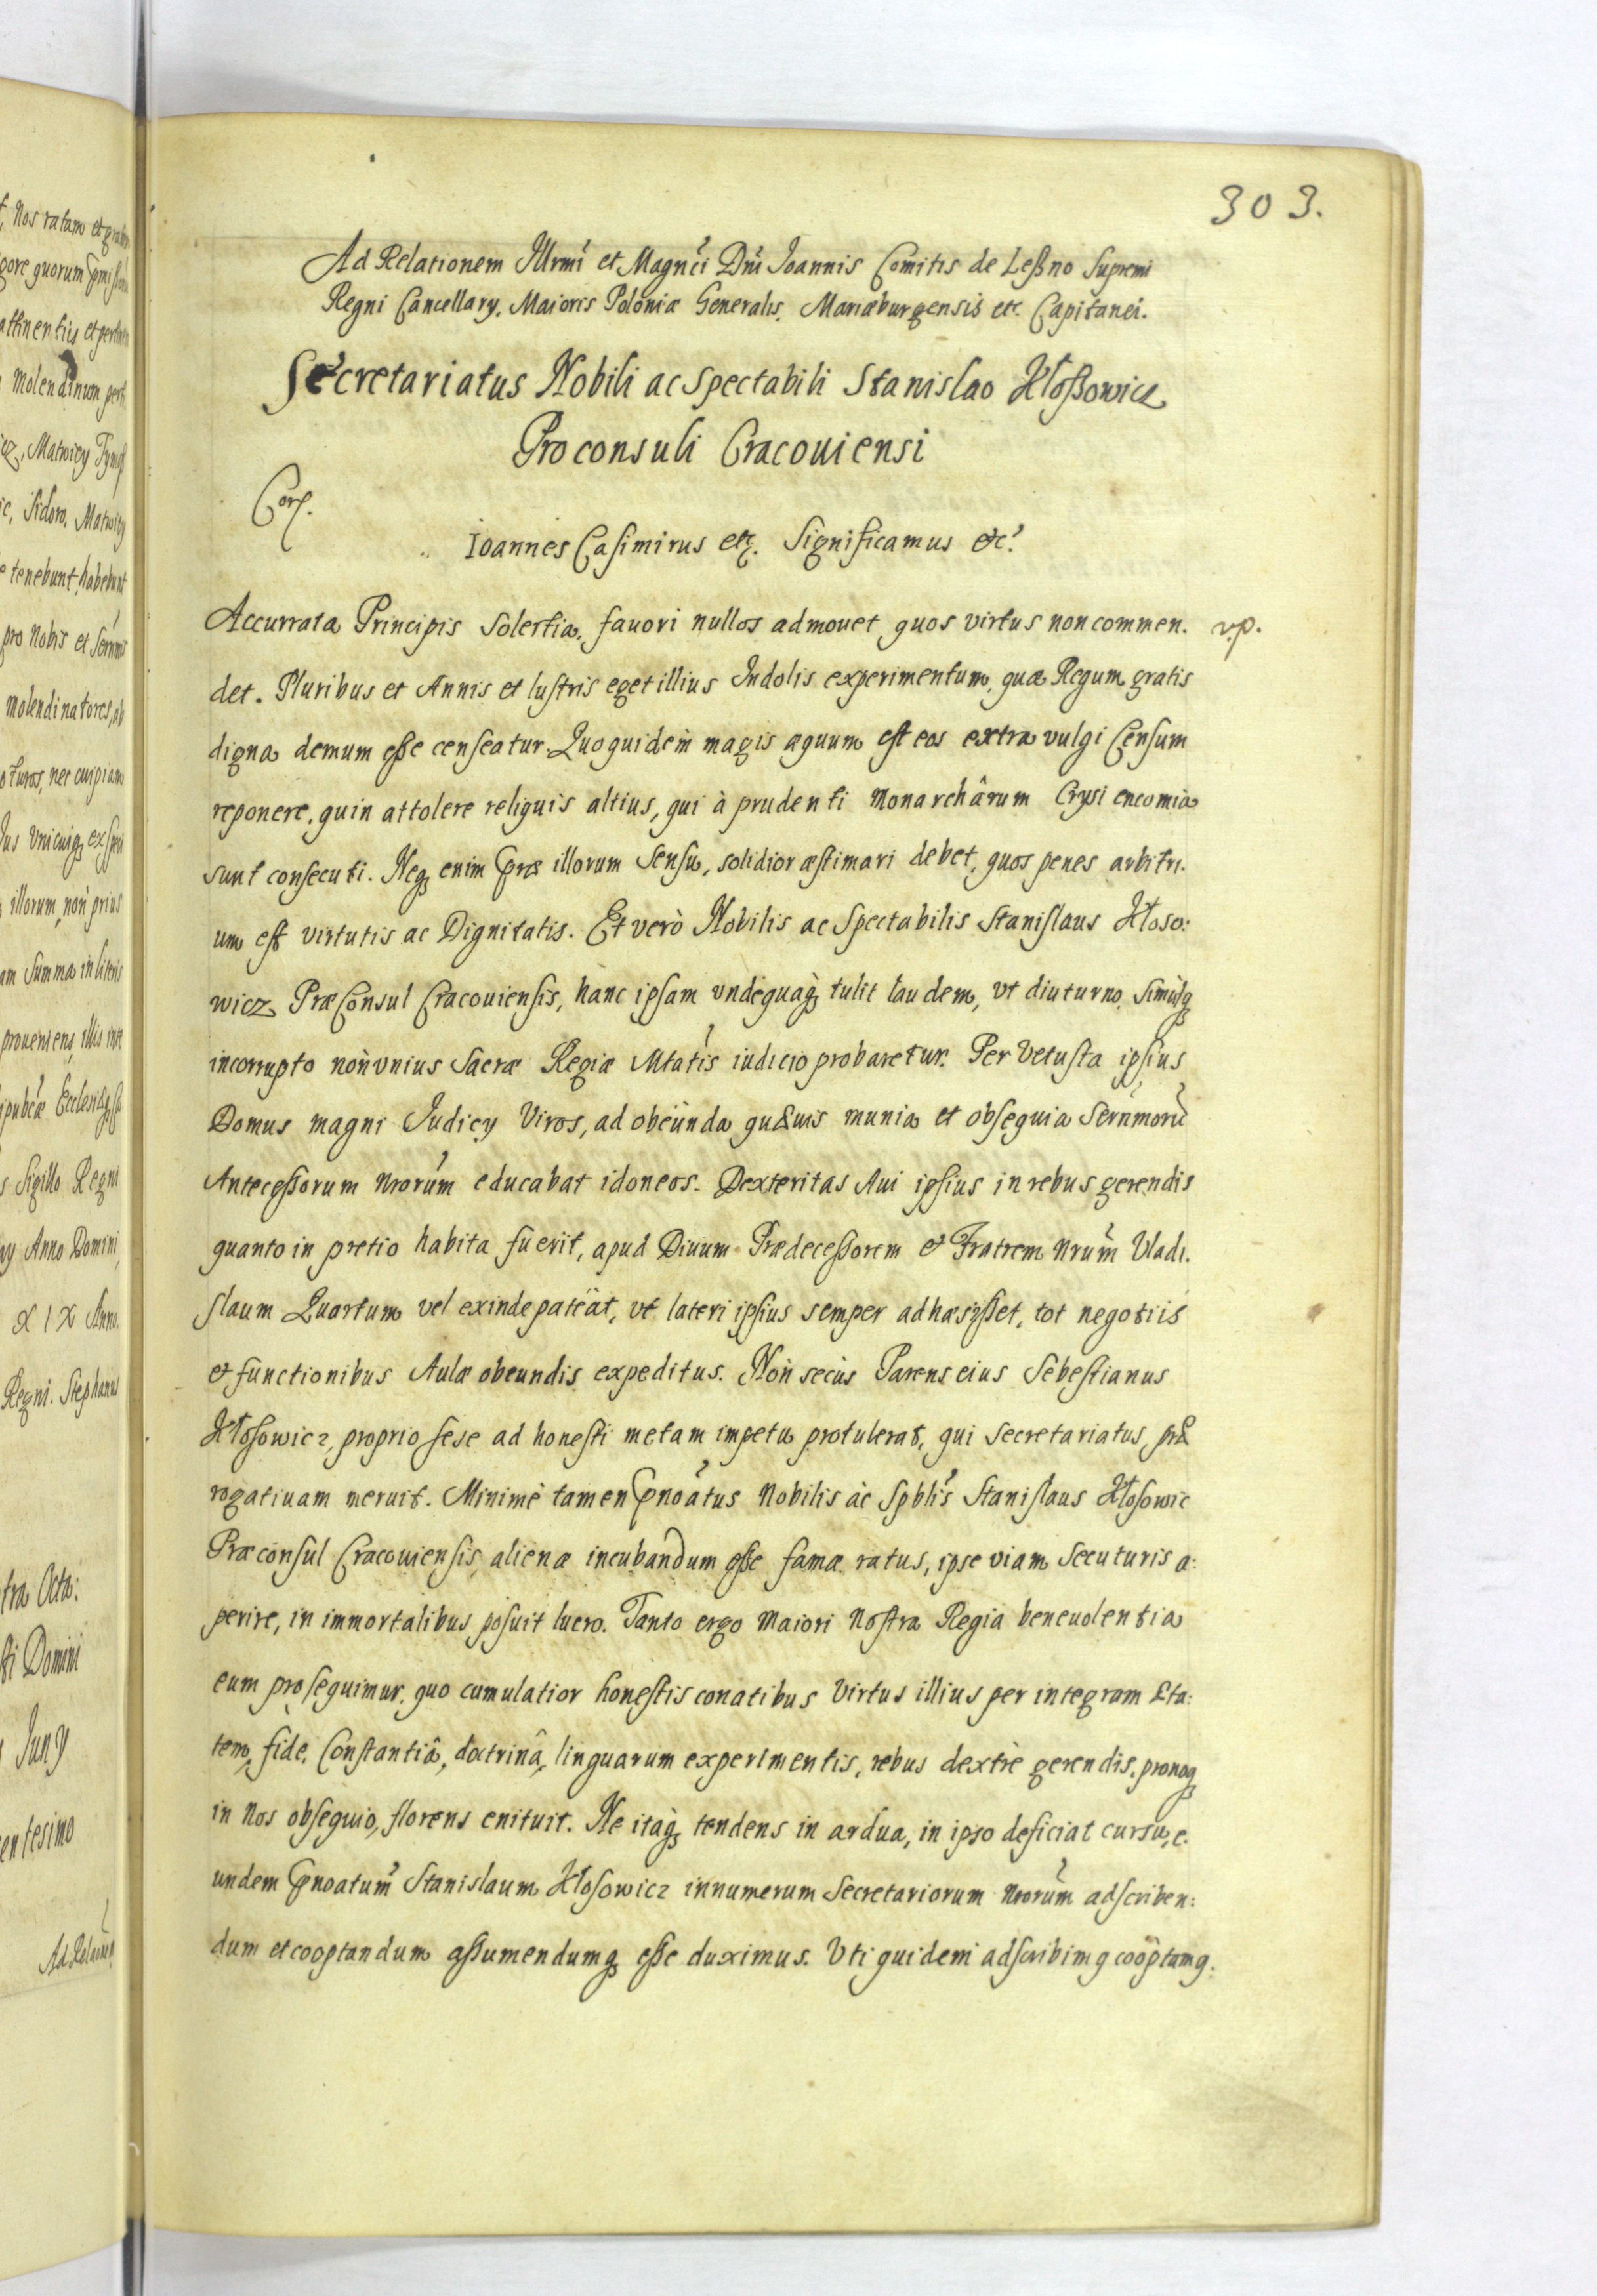 303.
Ad Relationem Illrmi et Magnci Dni Ioannis Comitis de Leßno Supremi
Regni Cancellary, Maioris Poloniæ Generalis, Mariæburgensis etc. Capitanei.
Secretariatus Nobili ac Spectabili Stanislao Kłoßowicz
Proconsuli Cracouiensi
Corr.
Ioannes Casimirus etc. Significamus etc.
Accurrata Principis Solertia, fauori nullos admouet quos virtus non commen. vp.
det. Pluribus et Annis et lustris eget illius Indolis experimentum, quæ Regum gratis
digna demum esse censeatur. Quo quidem magis æquum est eos extra vulgi Censum
reponere, quin attolere reliquis altius, qui à prudenti Monarchârum Crysi encomia
sunt consecuti. Neq3 enim præ illorum Sensu, solidior æstimari debet, quos penes arbitri.
um est virtutis ac Dignitatis. Et verò Nobilis ac Spectabilis Stanislaus Kłoso:
wicz PræConsul Cracouiensis, hanc ipsam vndequaq3 tulit laudem, vt diuturno simulq3
incorrupto non vnius Sacræ Regiæ Mtatis iudicio probaretur. Per Vetusta ipsius
Domus magni Iudicy Viros, ad obeunda quæuis munia et obsequia Sernmorũ
Antecessorum Nrorum educabat idoneos. Dexteritas Aui ipsius in rebus gerendis
quanto in pretio habita fuerit, apud Diuum Prædecessorem et Fratrem Nrum Vladi.
slaum Quartum vel exinde pateat, vt lateri ipsius semper adhæsisset, tot negotiis
et functionibus Aulæ obeundis expeditus. Non secùs Parens eius Sebestianus
Kłosowicz, proprio sese ad honesti metam impetu protulerat, qui Secretariatus præ
rogatiuam meruit. Minimè tamen pnoatus Nobilis àc Spblis Stanislaus Kłosowic
Præconsul Cracouiensis, alienæ incubandum esse famæ ratus, ipse viam Secuturis a:
perire, in immortalibus posuit lucro. Tanto ergo Maiori Nostra Regia beneuolentia
eum prosequimur, quo cumulatior honestis conatibus Virtus illius per integram Æta:
tem, fide, Constantiâ, doctrinâ, linguarum experimentis, rebus dextrè gerendis, pronoq3
in Nos obsequio, florens enituit. Ne itaq3 tendens in ardua, in ipso deficiat cursu, e.
undem pnoatum Stanislaum Kłosowicz in numerum Secretariorum Nrorum adscriben:
dum et cooptandum assumendumq3 esse duximus. Vti quidem adscribimq cooptamq.